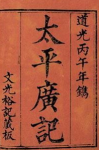 道光丙午年鐫
太平廣記
文光裕記藏板